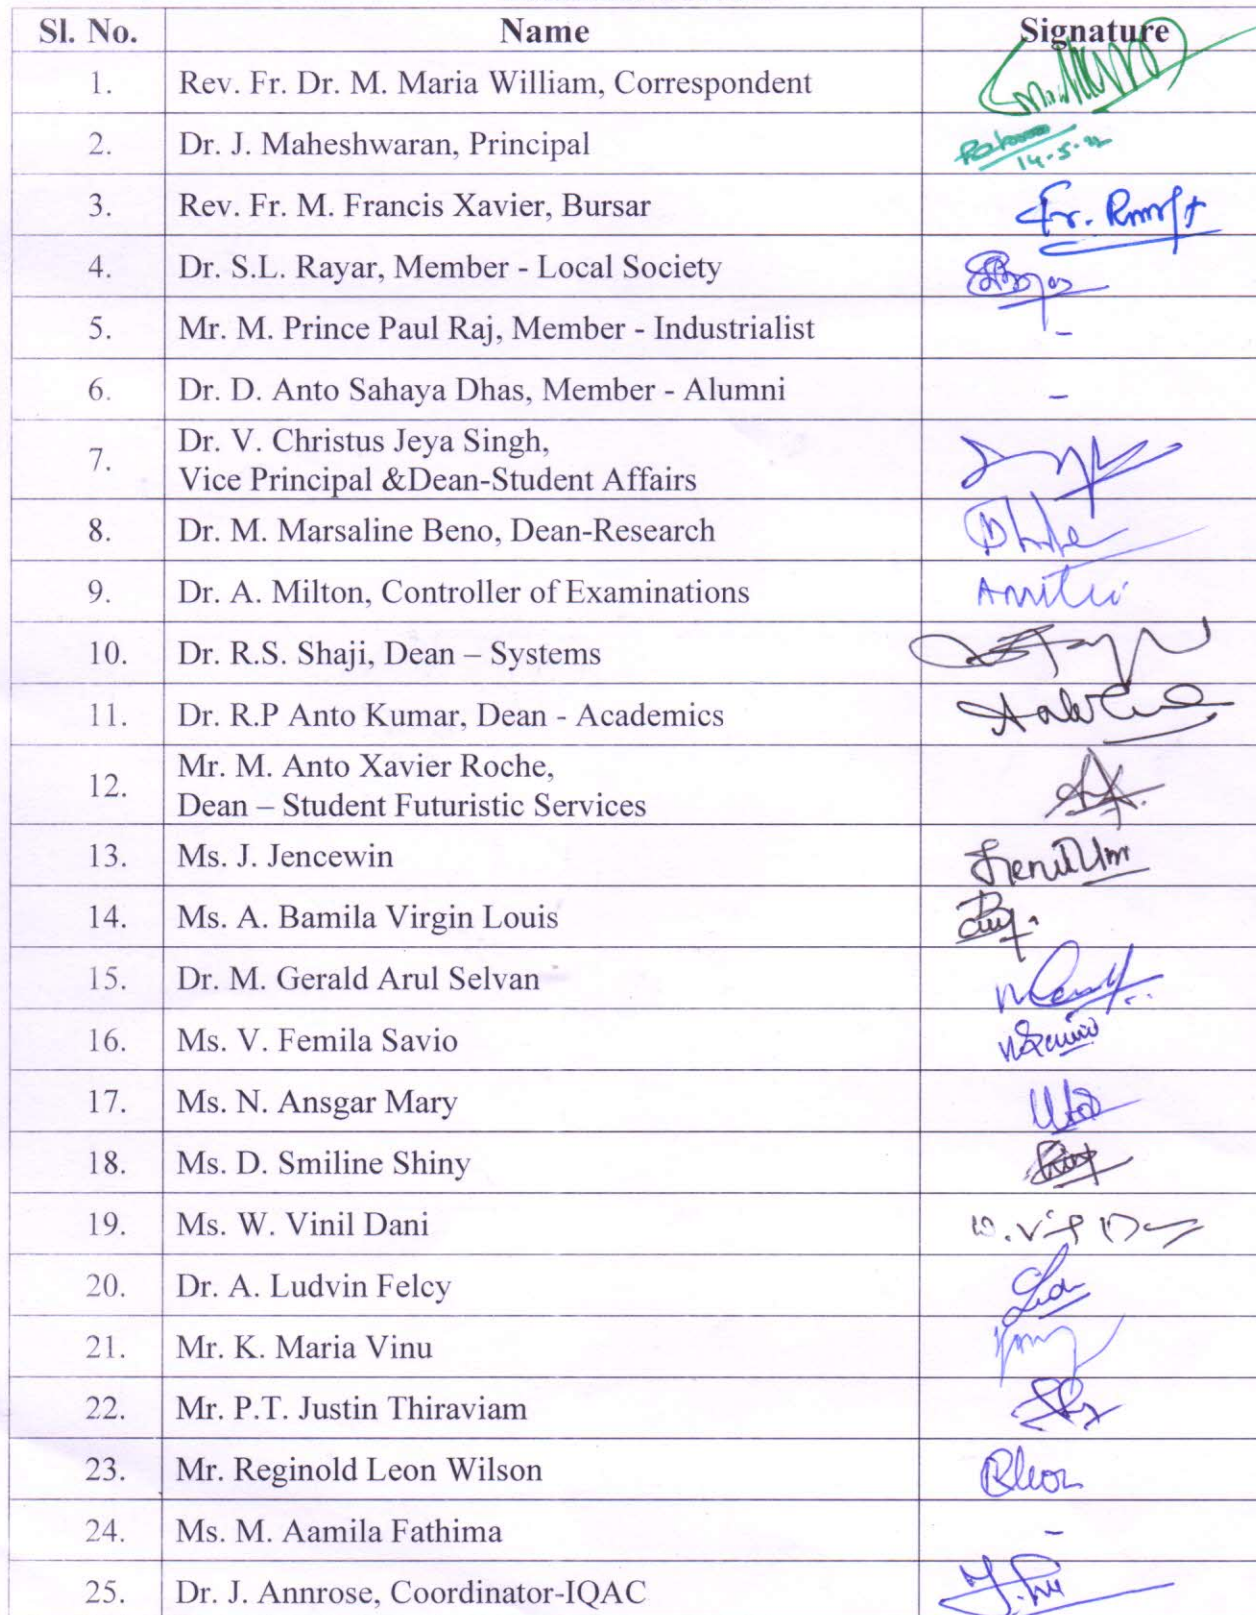 Sl. No. Name Signature
1. Rev. Fr. Dr. M. Maria William, Correspondent
2. Dr. J. Maheshwaran, Principal
14-5-22
3. Rev. Fr. M. Francis Xavier, Bursar Fr.
4. Dr. S.L. Rayar, Member - Local Society
5. Mr. M. Prince Paul Raj, Member - Industrialist -
6. Dr. D. Anto Sahaya Dhas, Member - Alumni -
7. Dr. V. Christus Jeya Singh,
Vice Principal &Dean-Student Affairs
8. Dr. M. Marsaline Beno, Dean-Research
9. Dr. A. Milton, Controller of Examinations
10. Dr. R.S. Shaji, Dean – Systems
11. Dr. R.P Anto Kumar, Dean - Academics
12. Mr. M. Anto Xavier Roche,
Dean – Student Futuristic Services
13. Ms. J. Jencewin
14. Ms. A. Bamila Virgin Louis
15. Dr. M. Gerald Arul Selvan
16. Ms. V. Femila Savio
17. Ms. N. Ansgar Mary
18. Ms. D. Smiline Shiny
19. Ms. W. Vinil Dani
20. Dr. A. Ludvin Felcy
21. Mr. K. Maria Vinu
22. Mr. P.T. Justin Thiraviam
23. Mr. Reginold Leon Wilson
24. Ms. M. Aamila Fathima -
25. Dr. J. Annrose, Coordinator-IQAC